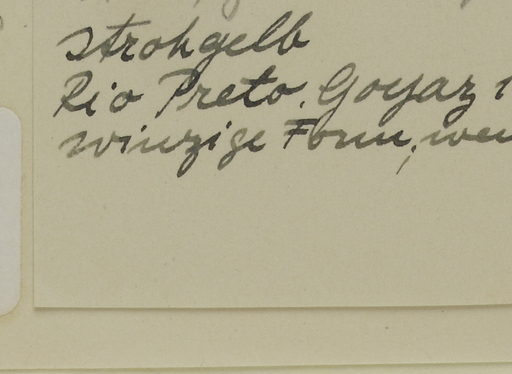 strohgelb
Rio Preto, Goyaz
winzige Form,